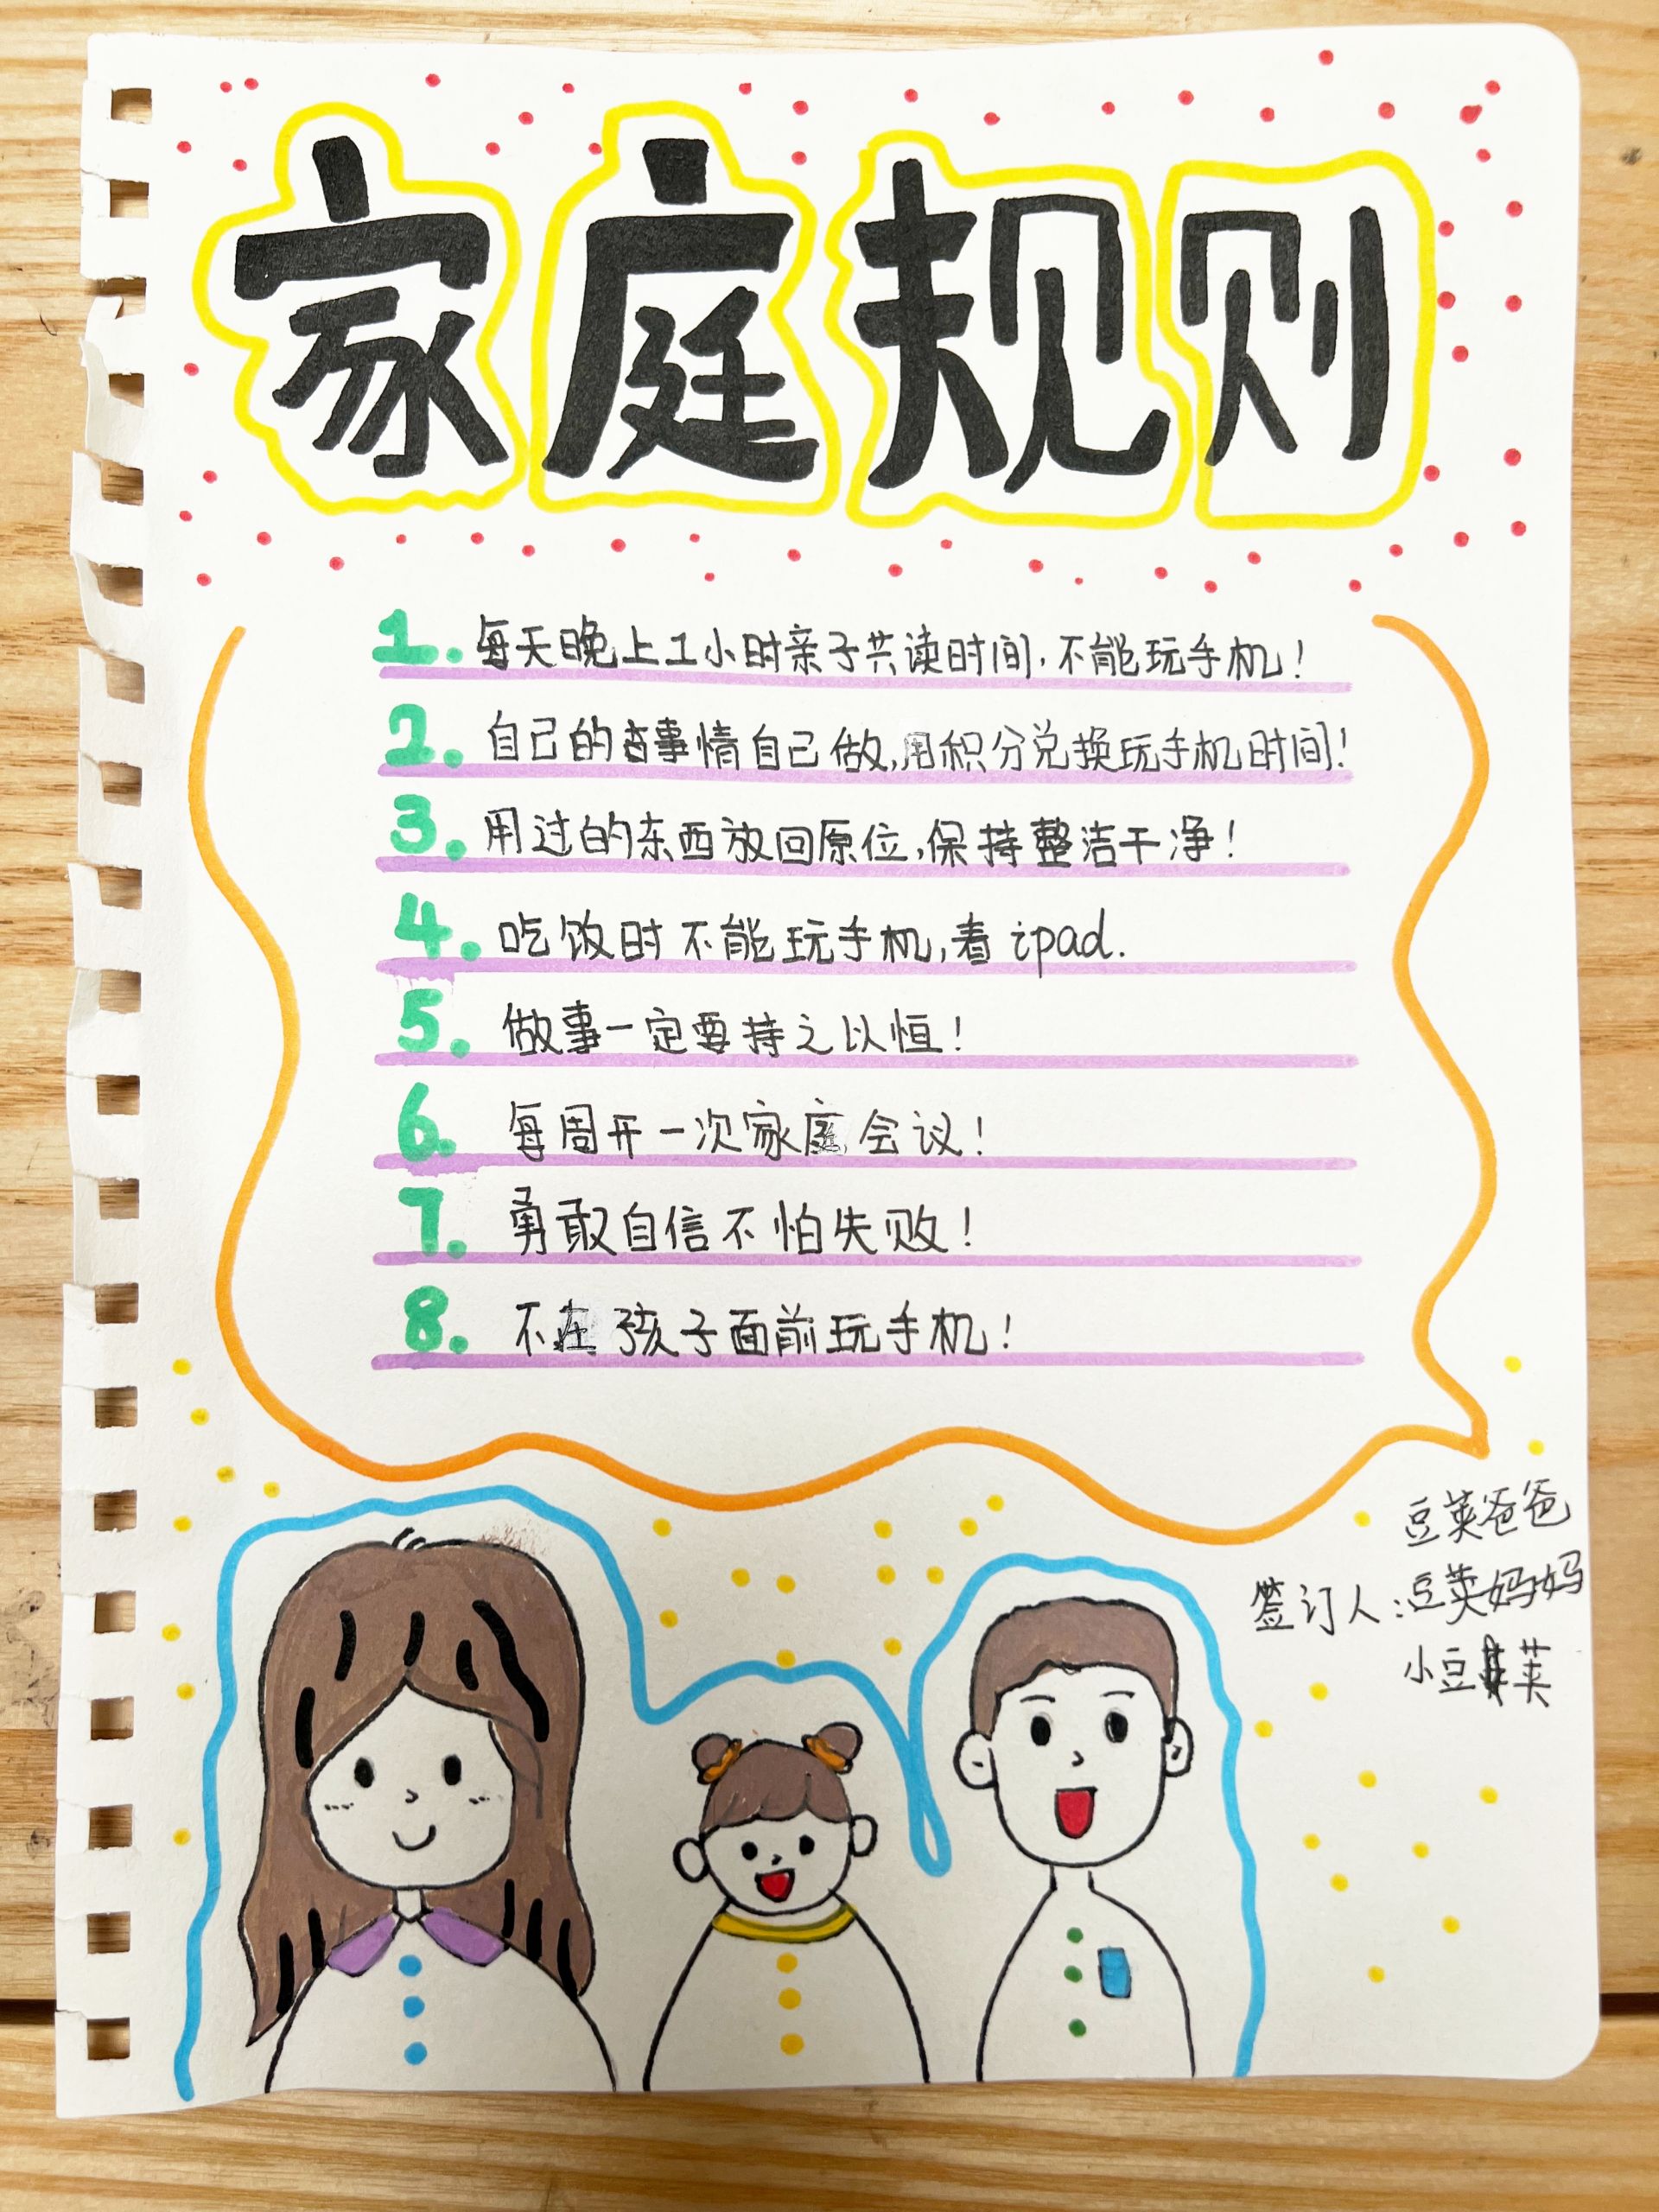 家庭规则
1. 每天晚上1小时亲子共读时间，不能玩手机！
2. 自己的事情自己做，用积分兑换玩手机时间！
3. 用过的东西放回原位，保持整洁干净！
4. 吃饭时不能玩手机，看ipad.
5. 做事一定要持之以恒！
6. 每周开一次家庭会议！
7. 勇敢自信不怕失败！
8. 不在孩子面前玩手机！
豆荚爸爸
签订人：豆荚妈妈
小豆荚